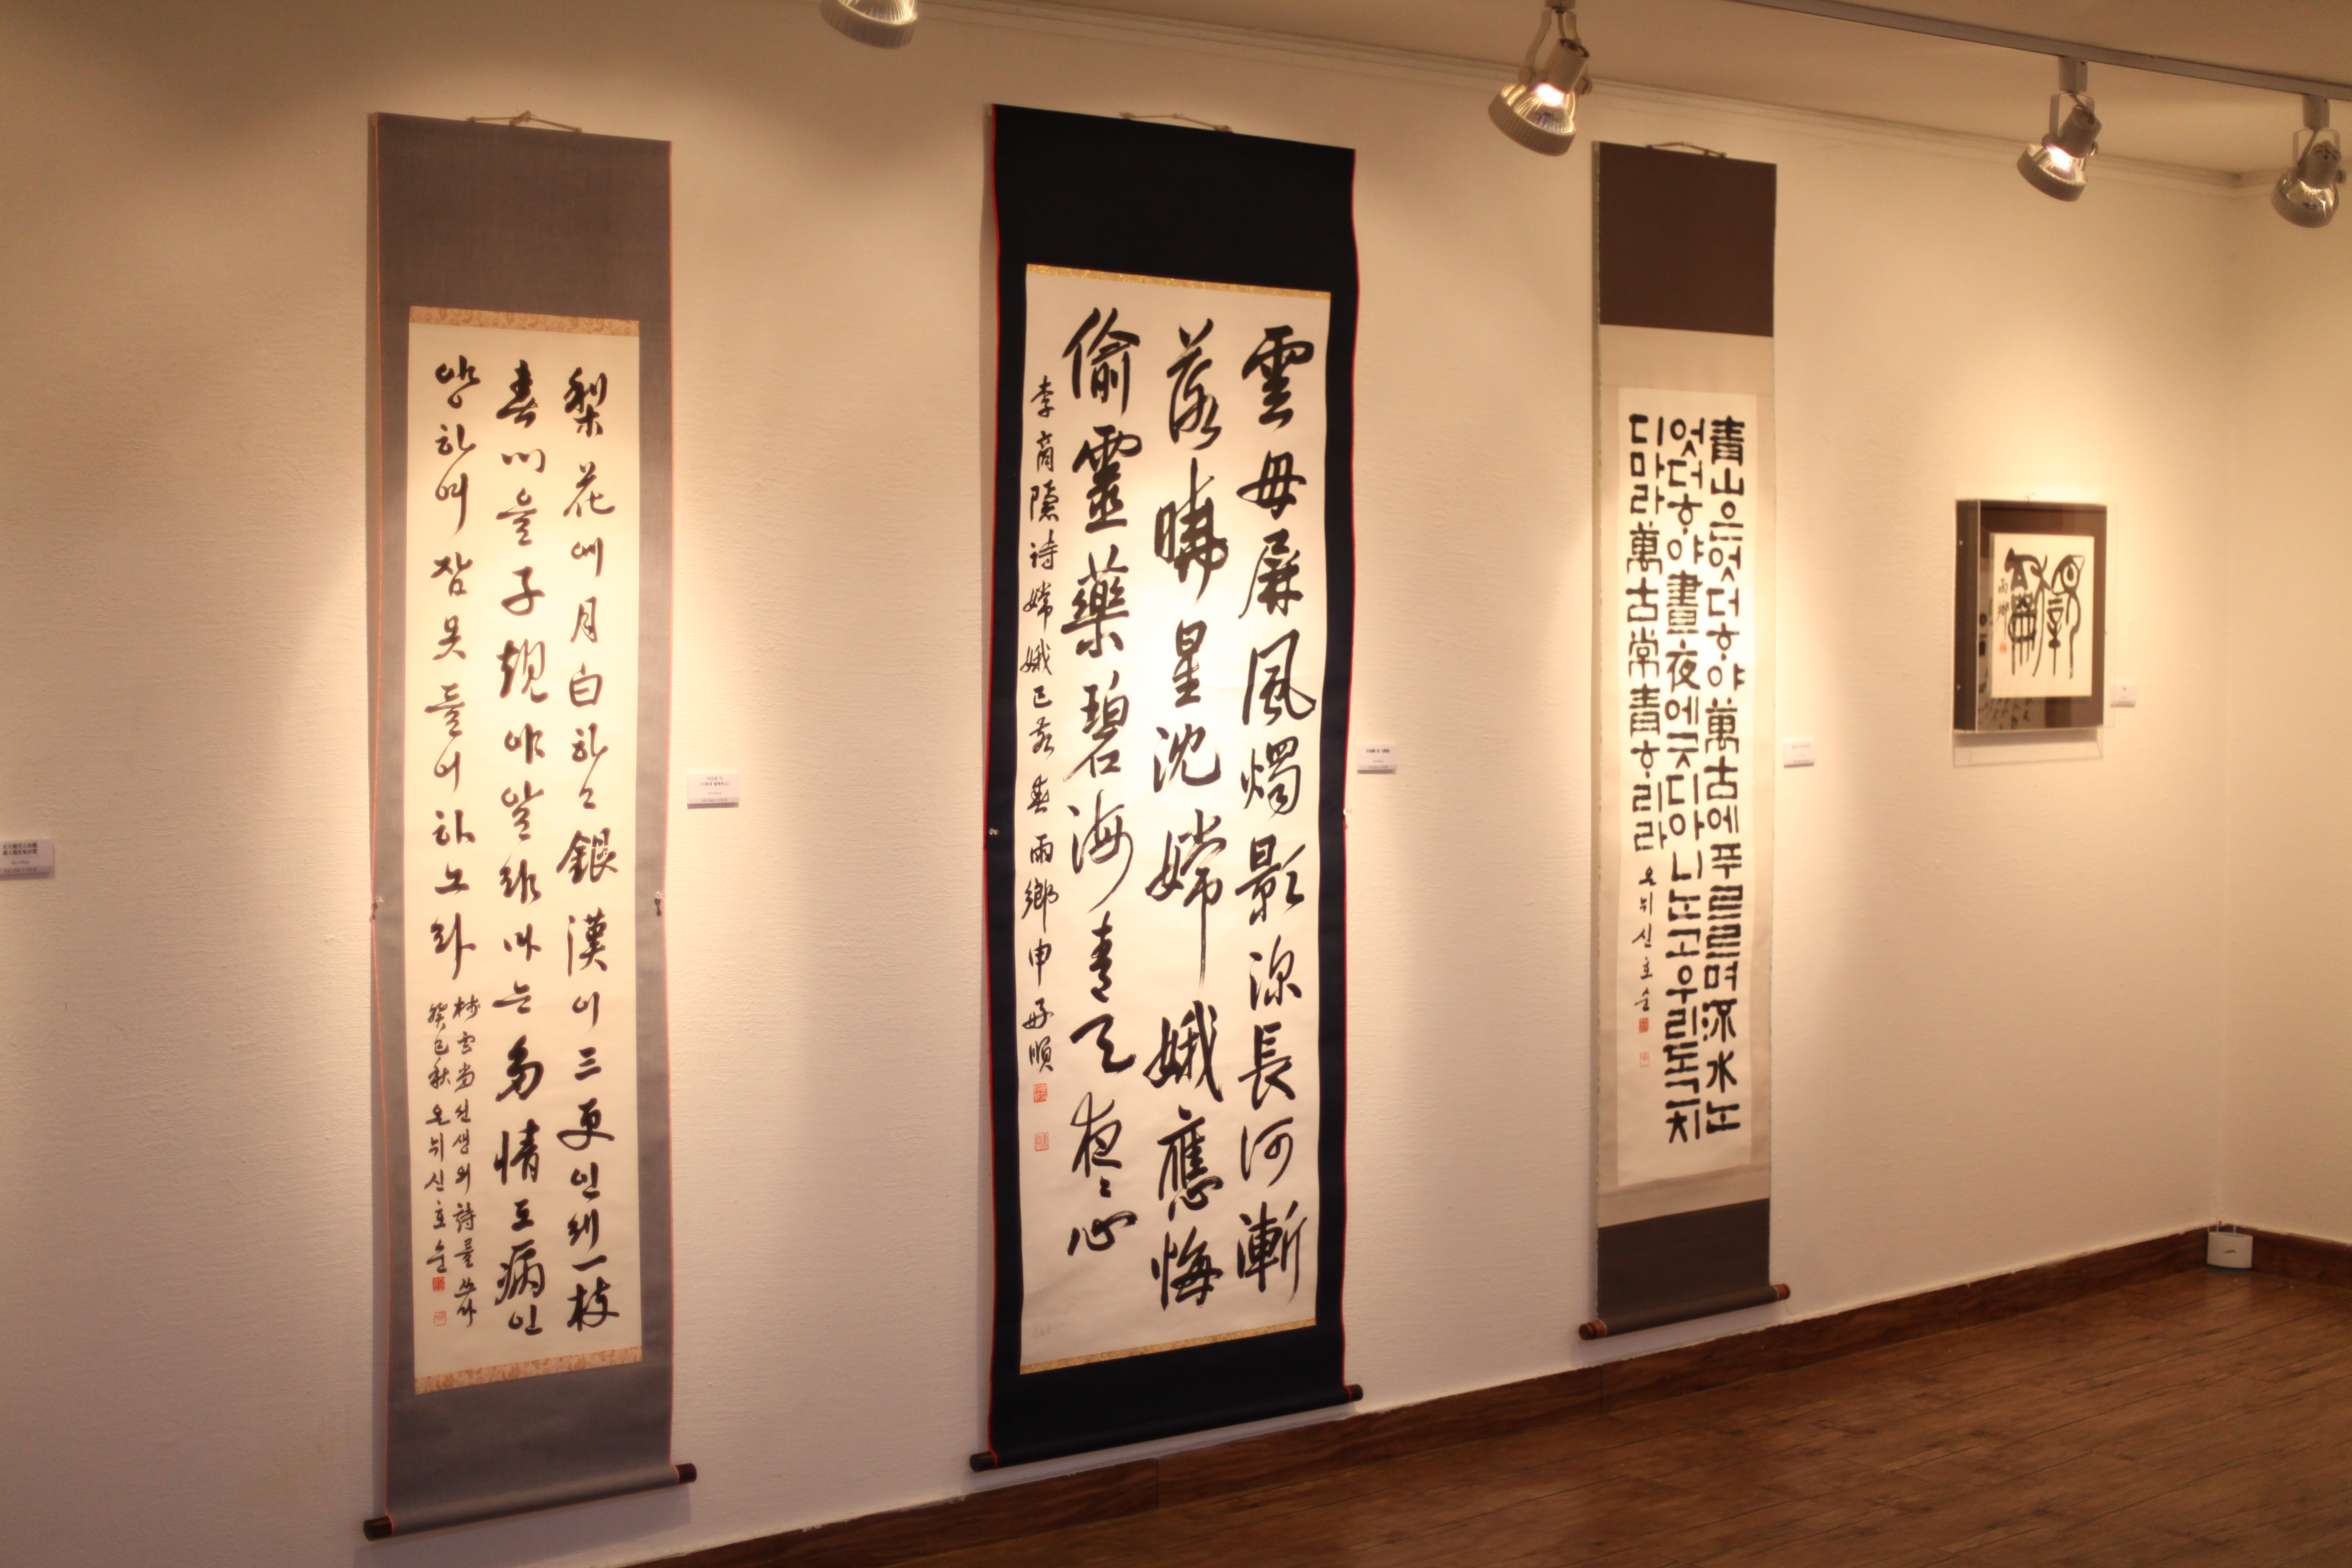 梨花에月白하고銀漢이三更인제一枝
春心을子規야알랴마는多情도病인
양하여잠못들어하노라
梅雲당선생의詩를쓰다
癸巳秋 온뉘신호순
雲母屏風燭影深長河漸
落曉星沈嫦娥應悔
偷靈藥碧海青天夜〻心
李商隱詩嫦娥 春 雨鄉申好順
青山은엇더ᄒᆞ야萬古에푸르르며流水ᄂᆞᆫ
엇더ᄒᆞ야晝夜에긋디아니ᄂᆞᆫ고우리도그치
디마라萬古常青ᄒᆞ리라 온뉘신호순
雨鄉